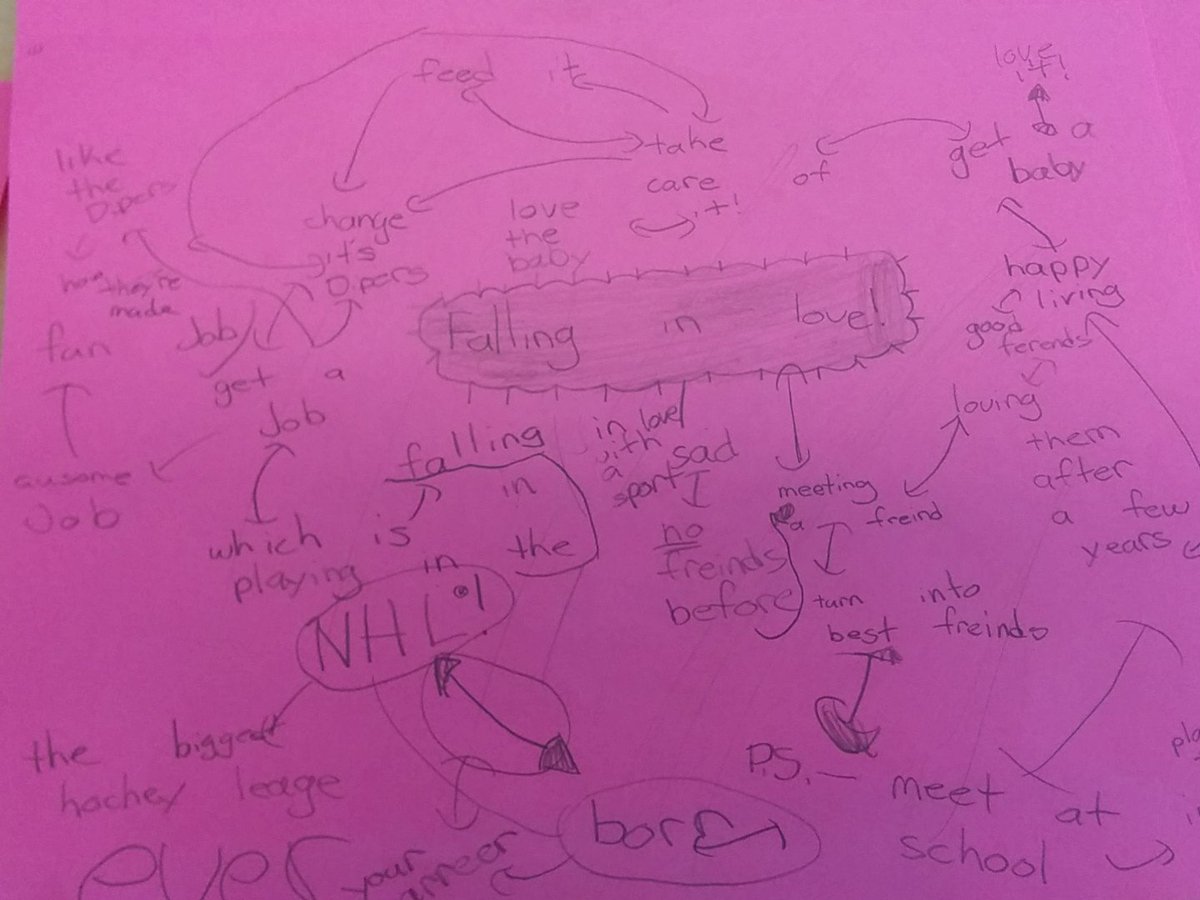 feed it
love
it!
take
care of
it!
get a
baby
like
the
D.pers
they're
made
change
it's
D.pers
love
the
baby
happy
living
good
ferends
Falling in love!
fan
Job
get a
Job
ausome
Job
which is
playing in the
falling
in
in love
with
a
sport
sad
no
freinds
before
loving
them
after
a few
years
meeting
a freind
turn into
best freinds
NHL!
the biggest
hockey leage
ever
born
your
P.S. - meet at
school